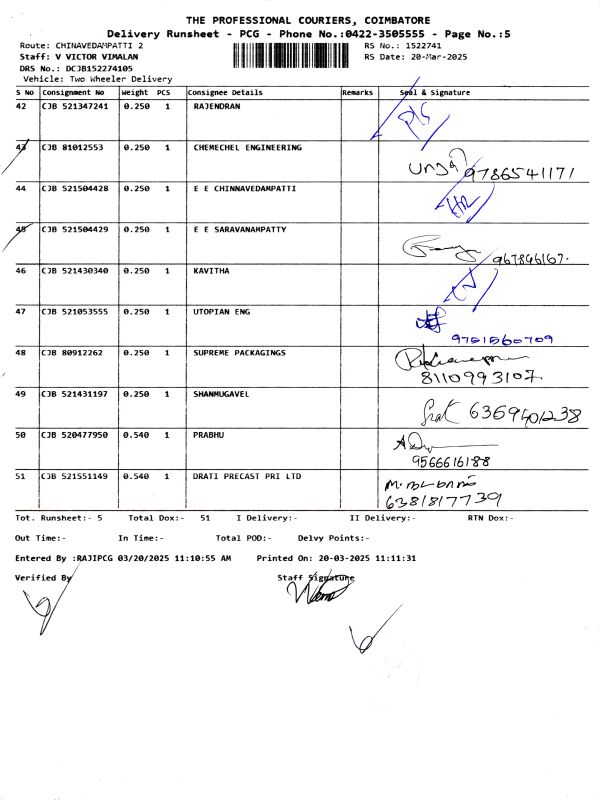 THE PROFESSIONAL COURIERS, COIMBATORE
Delivery Runsheet - PCG - Phone No.:0422-3505555 - Page No.:5
Route: CHINAVEDAMPATTI 2 RS No.: 1522741
Staff: V VICTOR VIMALAN RS Date: 20-Mar-2025
DRS No.: DCJB152274105
Vehicle: Two Wheeler Delivery
S No Consignment No Weight PCS Consignee Details Remarks Seal & Signature
42 CJB 521347241 0.250 1 RAJENDRAN
43 CJB 81012553 0.250 1 CHEMECHEL ENGINEERING
9786541171
44 CJB 521504428 0.250 1 E E CHINNAVEDAMPATTI
45 CJB 521504429 0.250 1 E E SARAVANAMPATTY
46 CJB 521430340 0.250 1 KAVITHA
47 CJB 521053555 0.250 1 UTOPIAN ENG
48 CJB 80912262 0.250 1 SUPREME PACKAGINGS
8110993107
49 CJB 521431197 0.250 1 SHANMUGAVEL
50 CJB 520477950 0.540 1 PRABHU
9566616188
51 CJB 521551149 0.540 1 DRATI PRECAST PRI LTD
6381817739
Tot. Runsheet:- 5 Total Dox:- 51 I Delivery:- II Delivery:- RTN Dox:-
Out Time:- In Time:- Total POD:- Delvy Points:-
Entered By :RAJIPCG 03/20/2025 11:10:55 AM Printed On: 20-03-2025 11:11:31
Verified By Staff Signature